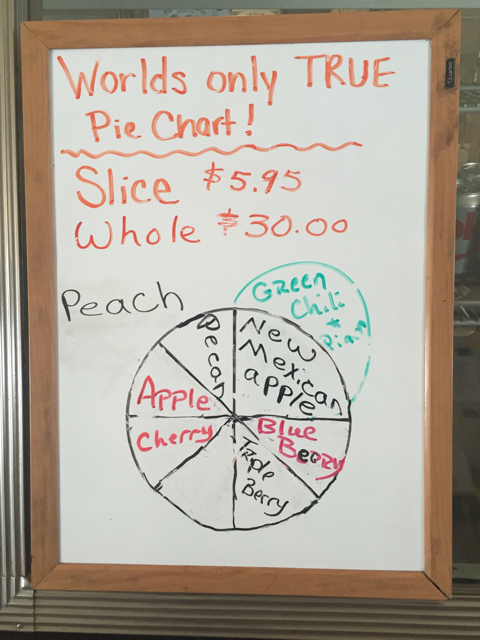 Worlds only TRUE
Pie Chart!
Slice $5.95
Whole $30.00
Peach
Green
Chili
Pecan
New
Mexican
apple
Apple
Cherry
Blue
Berry
Triple
Berry